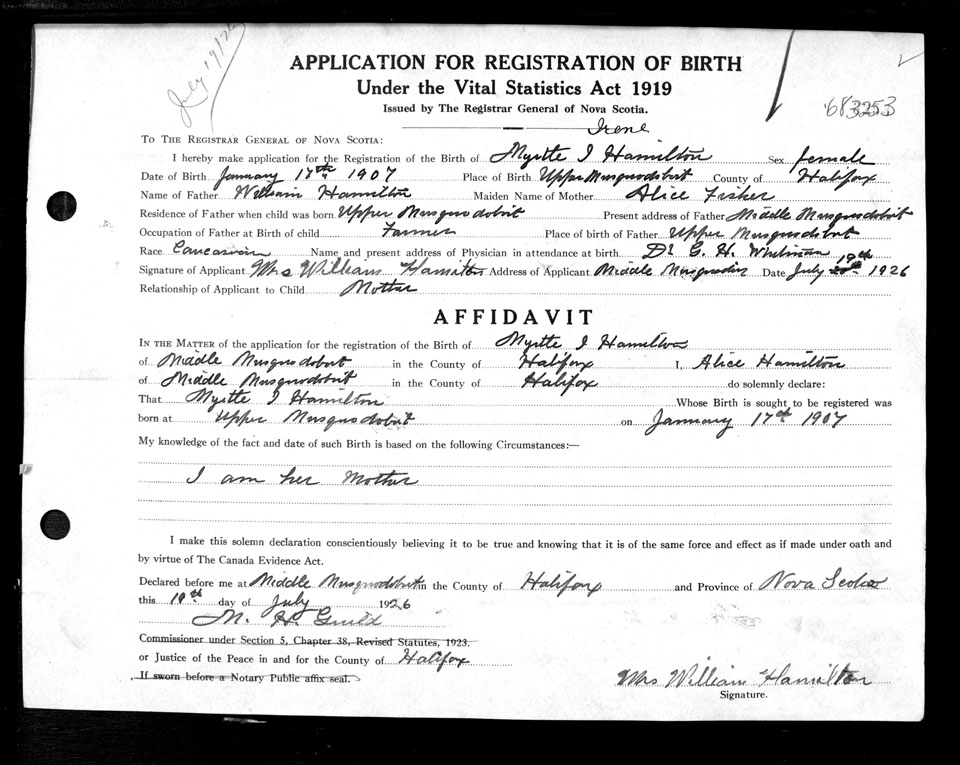 July 19/26
APPLICATION FOR REGISTRATION OF BIRTH
Under the Vital Statistics Act 1919
Issued by The Registrar General of Nova Scotia.
683253
Irene
TO THE REGISTRAR GENERAL OF NOVA SCOTIA:
I hereby make application for the Registration of the Birth of Myrtle I Hamilton Sex female
Date of Birth January 17th 1907 Place of Birth Upper Musquodobit County of Halifax
Name of Father William Hamilton Maiden Name of Mother Alice Fisher
Residence of Father when child was born Upper Musquodobit Present address of Father Middle Musquodobit
Occupation of Father at Birth of child Farmer Place of birth of Father Upper Musquodobit
Race Caucasian Name and present address of Physician in attendance at birth Dr G. H. Whitman
Signature of Applicant Mrs William Hamilton Address of Applicant Middle Date July 19th 1926
Relationship of Applicant to Child Mother
AFFIDAVIT
IN THE MATTER of the application for the registration of the Birth of Myrtle I Hamilton
of Middle Musquodobit in the County of Halifax I, Alice Hamilton
of Middle Musquodobit in the County of Halifax do solemnly declare:
That Myrtle I Hamilton Whose Birth is sought to be registered was
born at Upper Musquodobit on January 17th 1907
My knowledge of the fact and date of such Birth is based on the following Circumstances:—
I am her Mother
I make this solemn declaration conscientiously believing it to be true and knowing that it is of the same force and effect as if made under oath and
by virtue of The Canada Evidence Act.
Declared before me at Middle Musquodobit in the County of Halifax and Province of Nova Scotia
this 19th day of July 1926
M. H. Guild
Commissioner under Section 5, Chapter 38, Revised Statutes, 1923.
or Justice of the Peace in and for the County of Halifax
If sworn before a Notary Public affix seal.
Mrs William Hamilton
Signature.